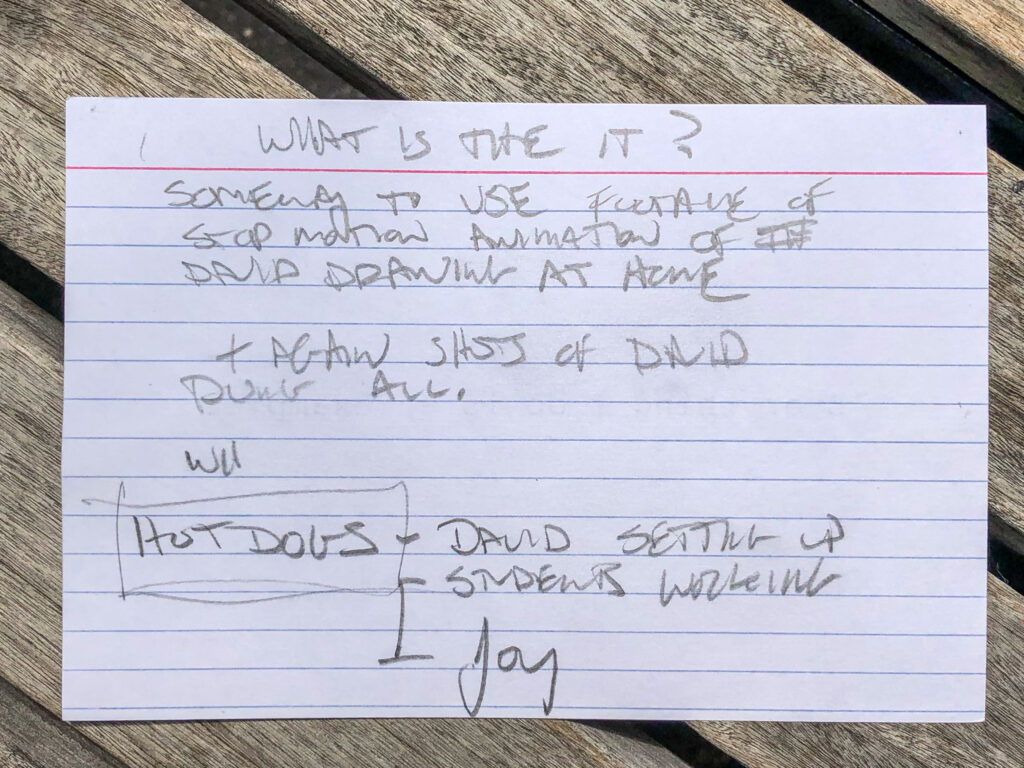 WHAT IS THE IT?
SOMEWAY TO USE FOOTAGE OF
STOP MOTION ANIMATION OF
DAVID DRAWING AT HOME
+ AGAIN SHOTS OF DAVID
ALL.
HOT DOGS - DAVID SETTING UP
- STUDENTS WORKING
Joy